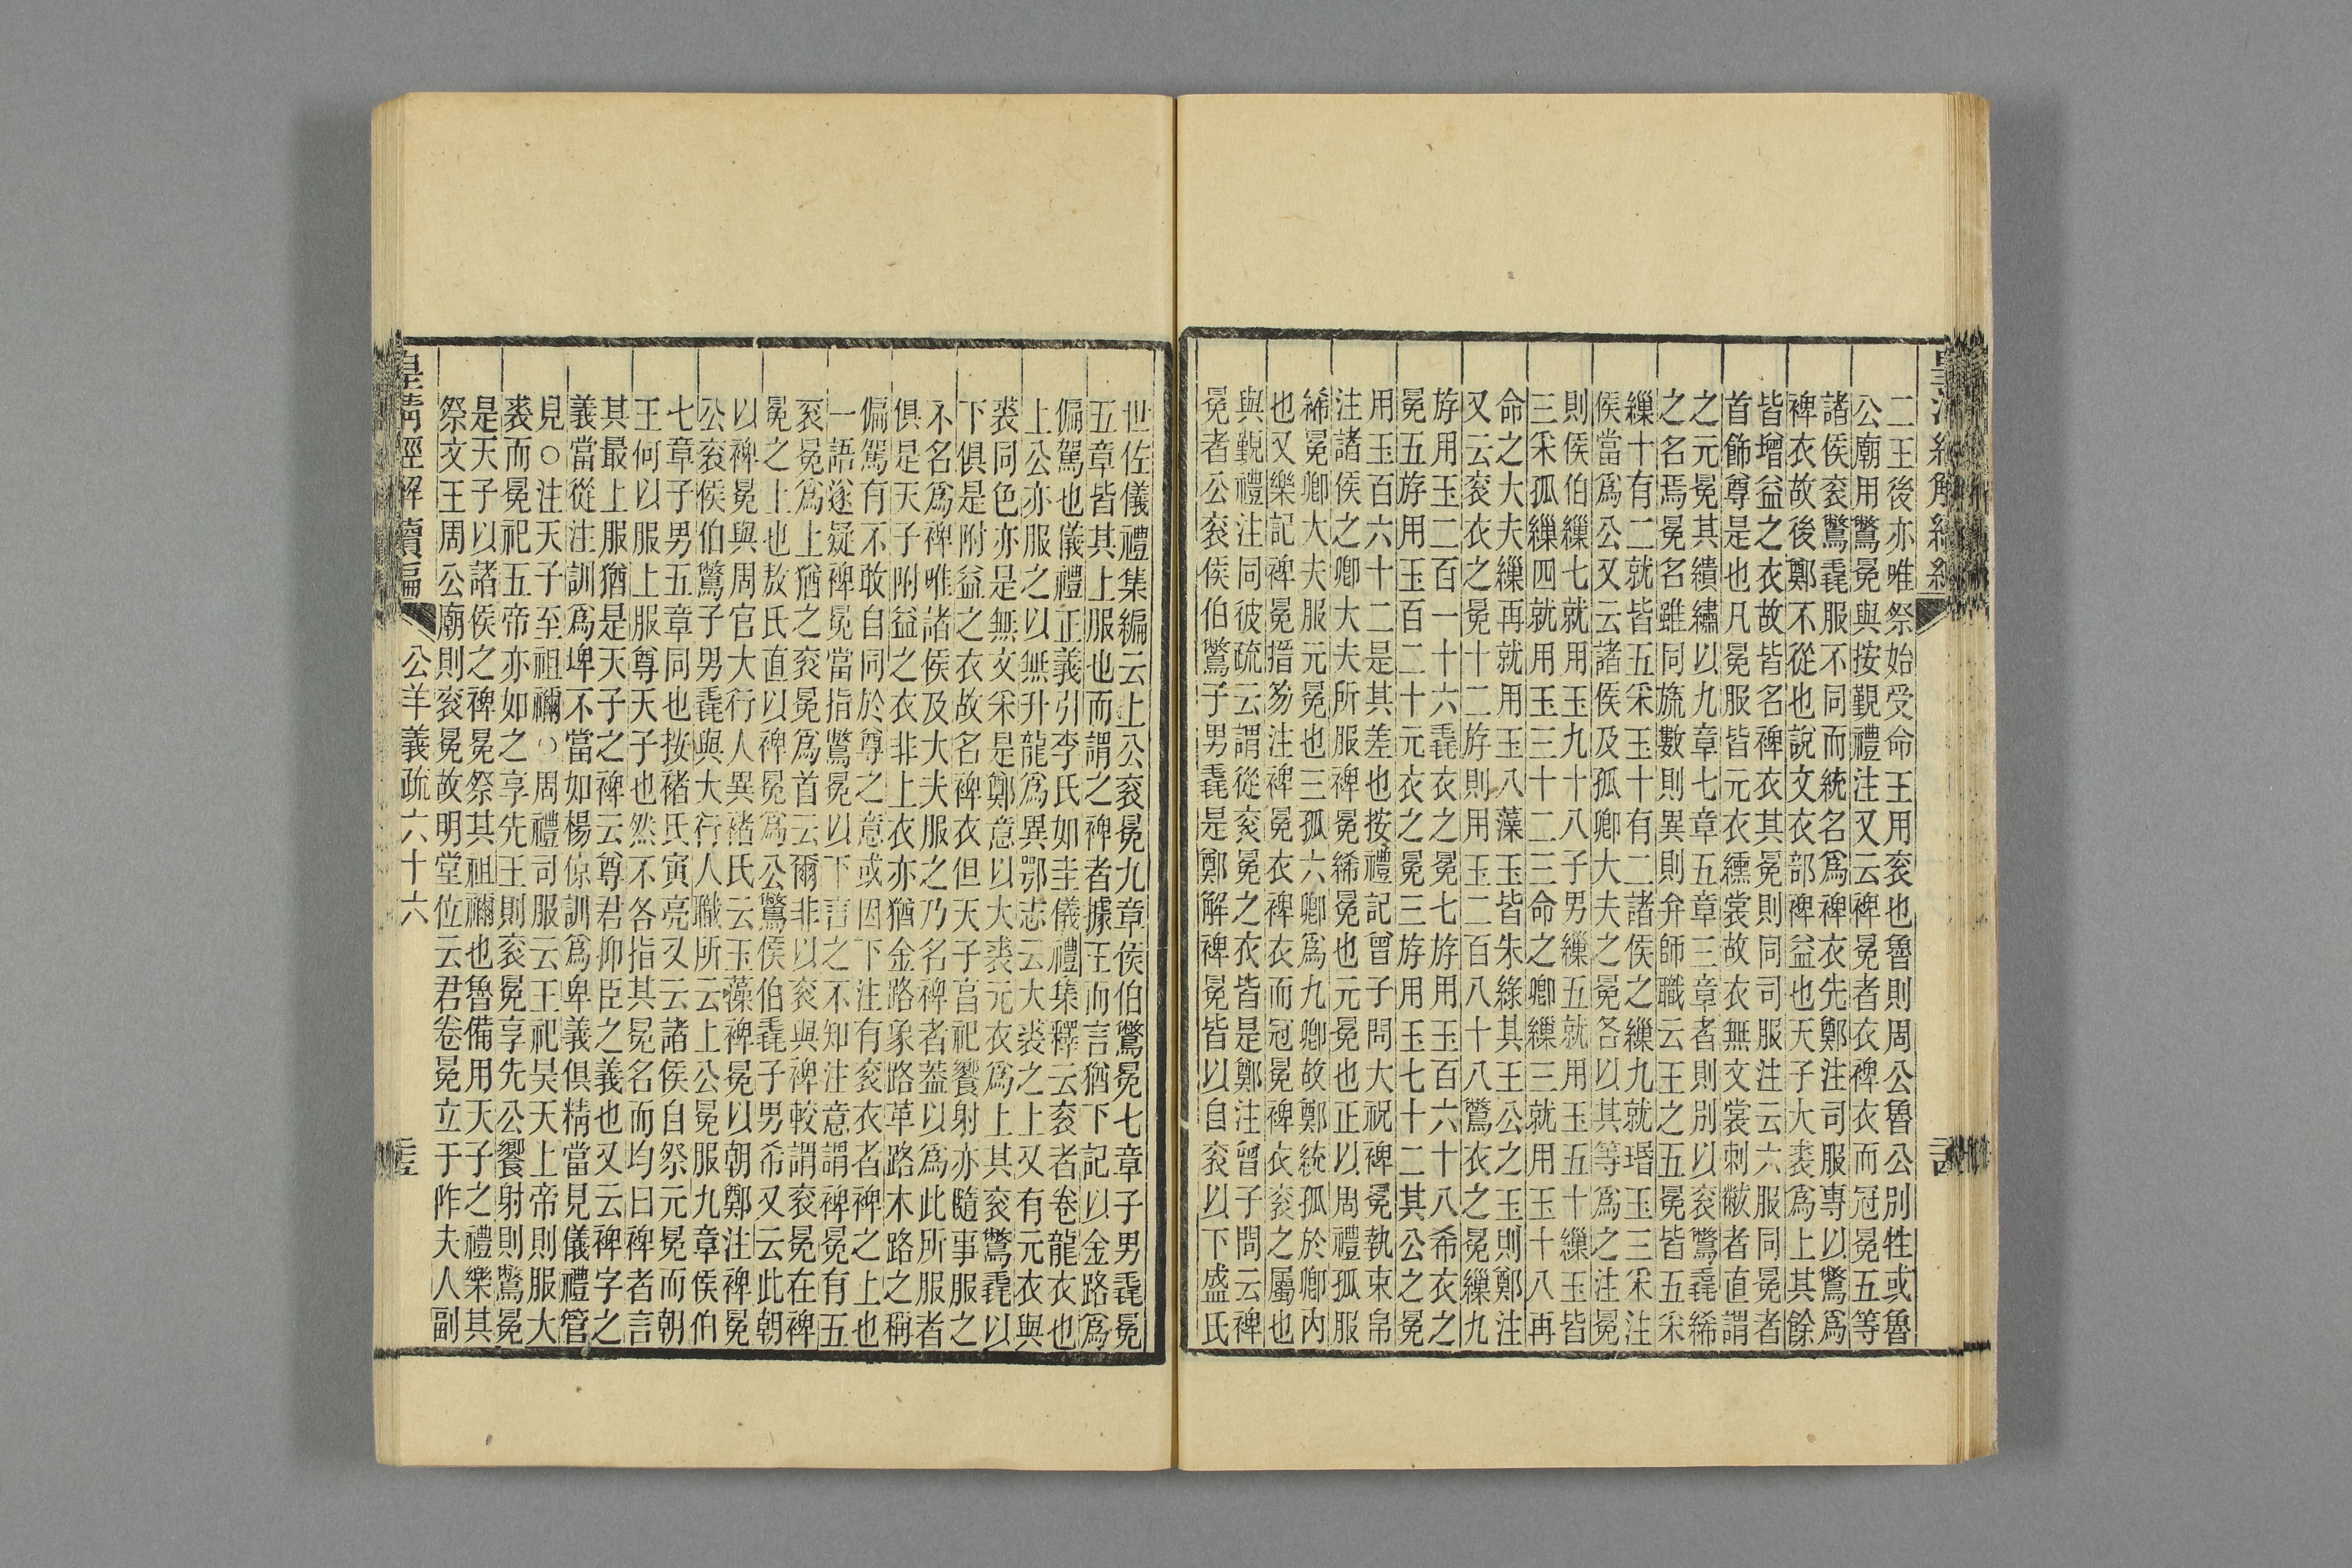 二王後亦唯祭始受命王用衮也魯則周公魯公別牲或魯
公廟用鷩冕與按覲禮注又云裨冕者衣裨衣而冠冕五等
諸侯衮鷩毳服不同而統名爲裨衣先鄭注司服專以鷩爲
裨衣故後鄭不從也說文衣部裨益也天子大裘爲上其餘
皆增益之衣故皆名裨衣其冕則同司服注云六服同冕者
首飾尊是也凡冕服皆元衣纁裳故衣無文裳刺黻者直謂
之元冕其繢繡以九章七章五章三章者則別以衮鷩毳絺
之名焉冕名雖同旒數則異則弁師職云王之五冕皆五采
繅十有二就皆五采玉十有二諸侯之繅九就瑉玉三采注
侯當爲公又云諸侯及孤卿大夫之冕各以其等爲之注冕
則侯伯繅七就用玉九十八子男繅五就用玉五十繅玉皆
三采孤繅四就用玉三十二三命之卿繅三就用玉十八再
命之大夫繅再就用玉八藻玉皆朱綠其王公之玉則鄭注
又云衮衣之冕十二斿則用玉二百八十八鷩衣之冕繅九
斿用玉二百一十六毳衣之冕七斿用玉百六十八希衣之
冕五斿用玉百二十元衣之冕三斿用玉七十二其公之冕
用玉百六十二是其差也按禮記曾子問大祝裨冕執束帛
注諸侯之卿大夫所服裨冕絺冕也元冕也正以周禮孤服
絺冕卿大夫服元冕也三孤六卿爲九卿故鄭統孤於卿內
也又樂記裨冕搢笏注裨冕衣裨衣而冠冕裨衣衮之屬也
與覲禮注同彼疏云謂從衮冕之衣皆是鄭注曾子問云裨
冕者公衮侯伯鷩子男毳是鄭解裨冕皆以自衮以下盛氏
世佐儀禮集編云上公衮冕九章侯伯鷩冕七章子男毳冕
五章皆其上服也而謂之裨者據王而言猶下記以金路爲
偏駕也儀禮正義引李氏如圭儀禮集釋云衮者卷龍衣也
上公亦服之以無升龍爲異鄂志云大裘之上又有元衣與
裘同色亦是無文采是鄭意以大裘元衣爲上其衮鷩毳以
下俱是附益之衣故名裨衣但天子言祀饗射亦隨事服之
不名爲裨唯諸侯及大夫服之乃名裨者葢以爲此所服者
俱是天子附益之衣非上衣亦猶金路象路革路木路之稱
偏駕有不敢自同於尊之意或因下注有衮衣者裨之上也
一語遂疑裨冕當指鷩冕以下言之不知注意謂裨冕有五
衮冕爲上猶之衮冕爲首云爾非以衮與裨較謂衮冕在裨
冕之上也敖氏直以裨冕爲公鷩侯伯毳子男希又云此朝
以裨冕與周官大行人異褚氏云玉藻裨冕以朝鄭注裨冕
公衮侯伯鷩子男毳與大行人職所云上公冕服九章侯伯
七章子男五章同也按褚氏寅亮又云諸侯自祭元冕而朝
王何以服上服尊天子也然不各指其冕名而均曰裨者言
其最上服猶是天子之裨云尊君抑臣之義也又云裨字之
義當從注訓爲埤不當如楊倞訓爲卑義俱精當見儀禮管
見○注天子至祖禰○周禮司服云王祀昊天上帝則服大
裘而冕祀五帝亦如之享先王則衮冕享先公饗射則鷩冕
是天子以諸侯之裨冕祭其祖禰也魯備用天子之禮樂其
祭文王周公廟則衮冕故明堂位云君卷冕立于阼夫人副
皇清經解續編 公羊義疏六十六